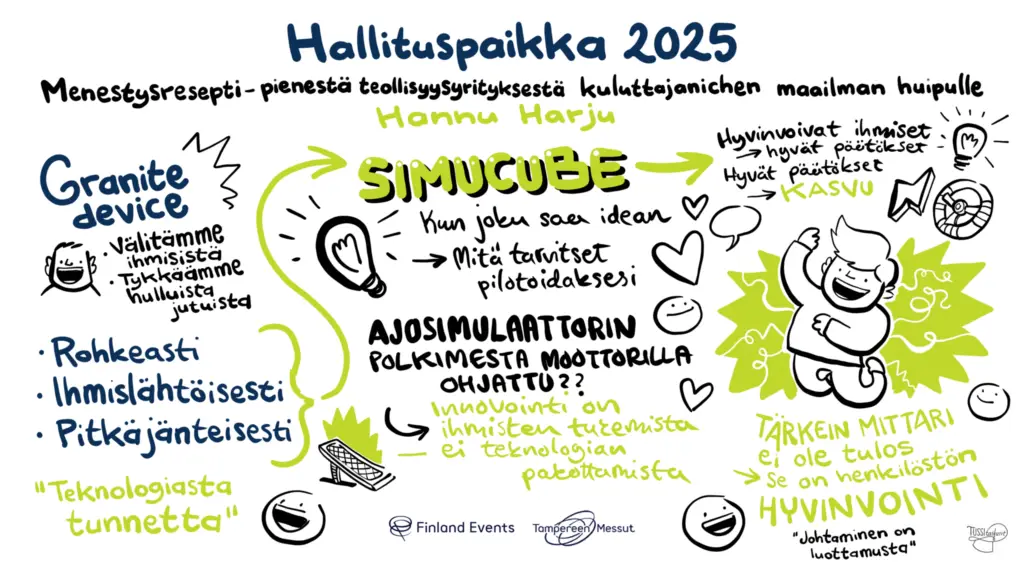 Hallituspaikka 2025
Menestysresepti - pienestä teollisyysyrityksestä kuluttajanichen maailman huipulle
Hannu Harju
Granite
device
· Välitämme
ihmisistä
· Tykkäämme
hulluista
jutuista
· Rohkeasti
· Ihmislähtöisesti
· Pitkäjänteisesti
"Teknologiasta
tunnetta"
SIMUCUBE
Kun joku saa idean
→ Mitä tarvitset
pilotoidaksesi
AJOSIMULAATTORIN
POLKIMESTA MOOTTORILLA
OHJATTU??
Innovointi on
ihmisten tukemista
— ei teknologian
pakottamista
Hyvinvoivat ihmiset
→ hyvät päätökset
Hyvät päätökset
→ KASVU
TÄRKEIN MITTARI
ei ole tulos
→ Se on henkilöstön
HYVINVOINTI
"Johtaminen on
luottamusta"
Finland Events
Tampereen Messut